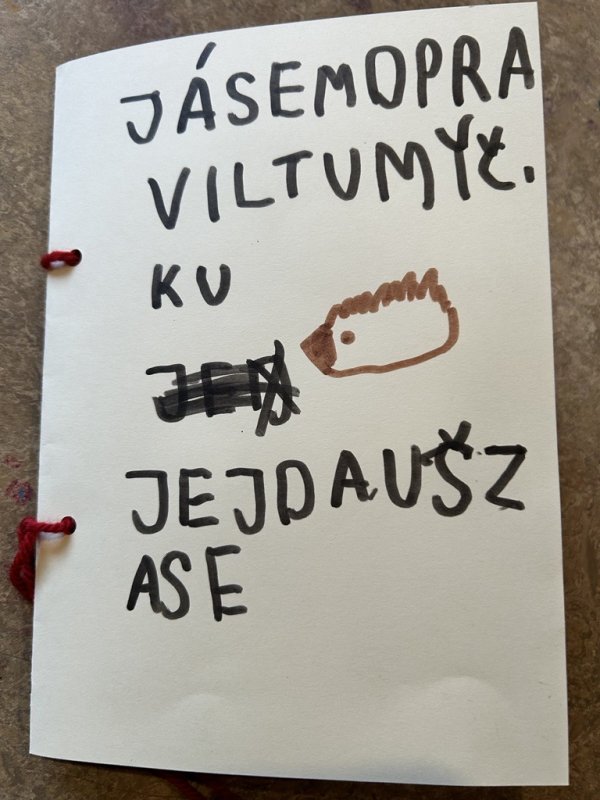 JÁSEMOPRA
VILTUMYČ.
KU
JEJDAUŠZ
ASE